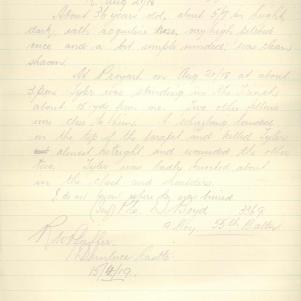 Aug 21/18
About 36 years old, about 5/7 in height,
dark, with aquiline nose, very high pitched
voice and a bit simple minded, was clean
shaven.
At Peronne on Aug 21/18 at about
3 pm Tyler was standing in the Trench,
about 15 yds from me. Two other fellows
was close to him. A whizbang landed
on the top of the parapet and killed Tyler
almost outright and wounded the other
two. Tyler was badly knocked about
on the chest and shoulders.
I do not know where he was buried
(Sgd) Pte. Lloyd
9 Coy 55th Battn
15/9/19.